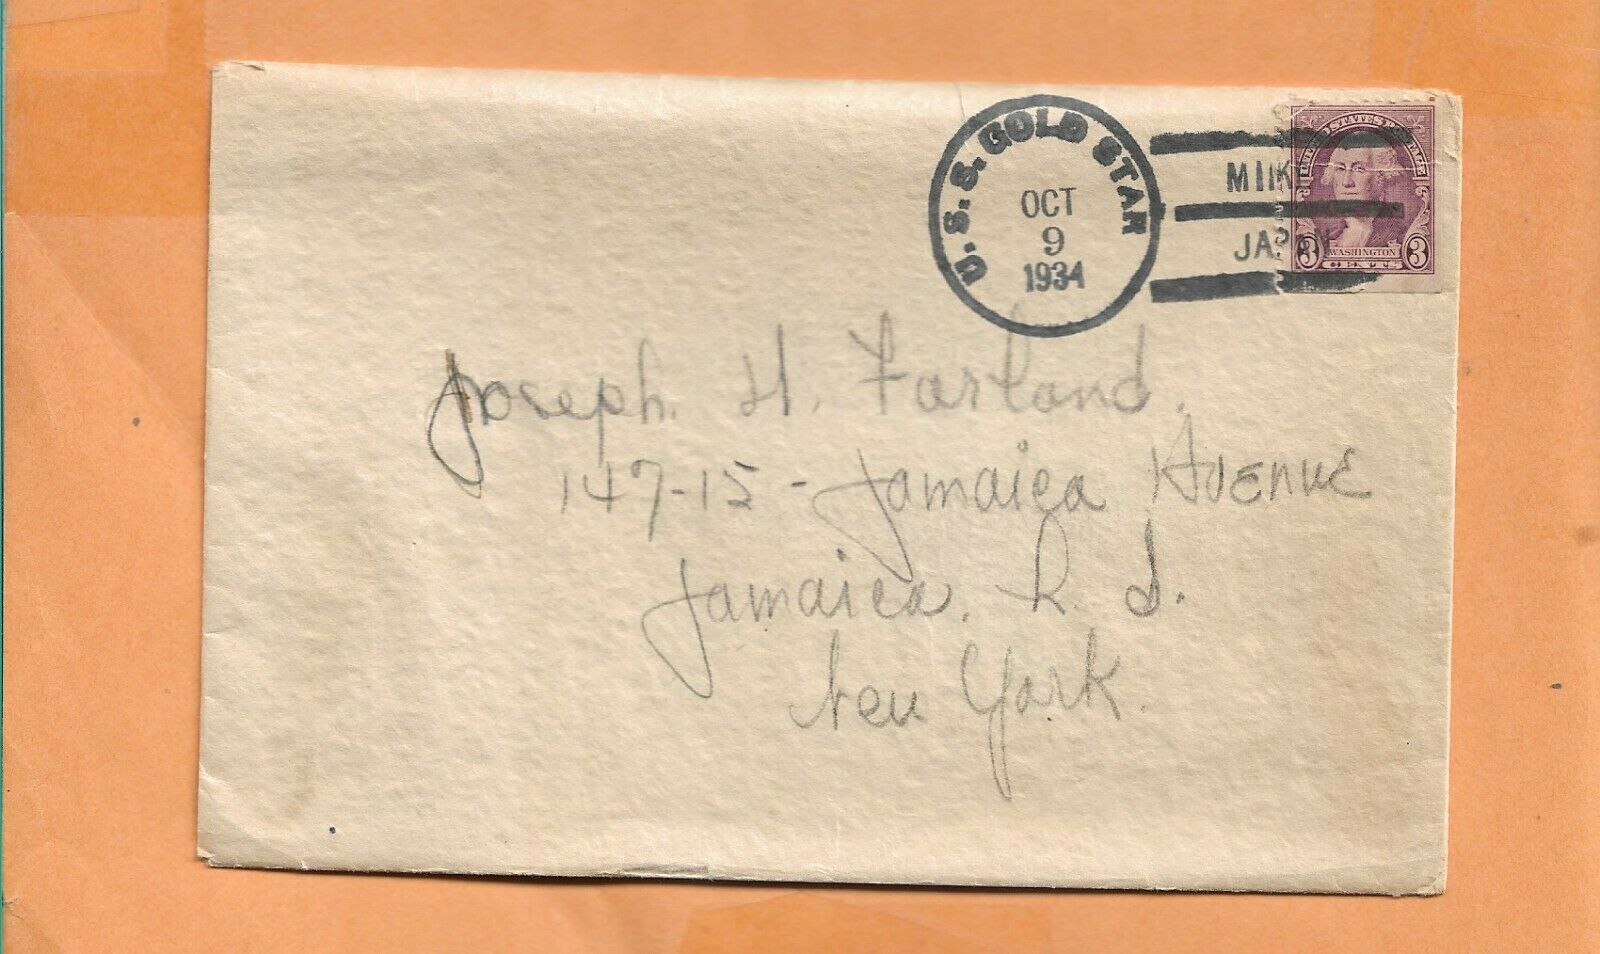 U. S. S. GOLD STAR
OCT
9
1934
MIIKE
JAPAN
UNITED STATES POSTAGE
3 WASHINGTON 3
CENTS
Joseph H. Farland.
147-15 - Jamaica Avenue
Jamaica. L. I.
New York.